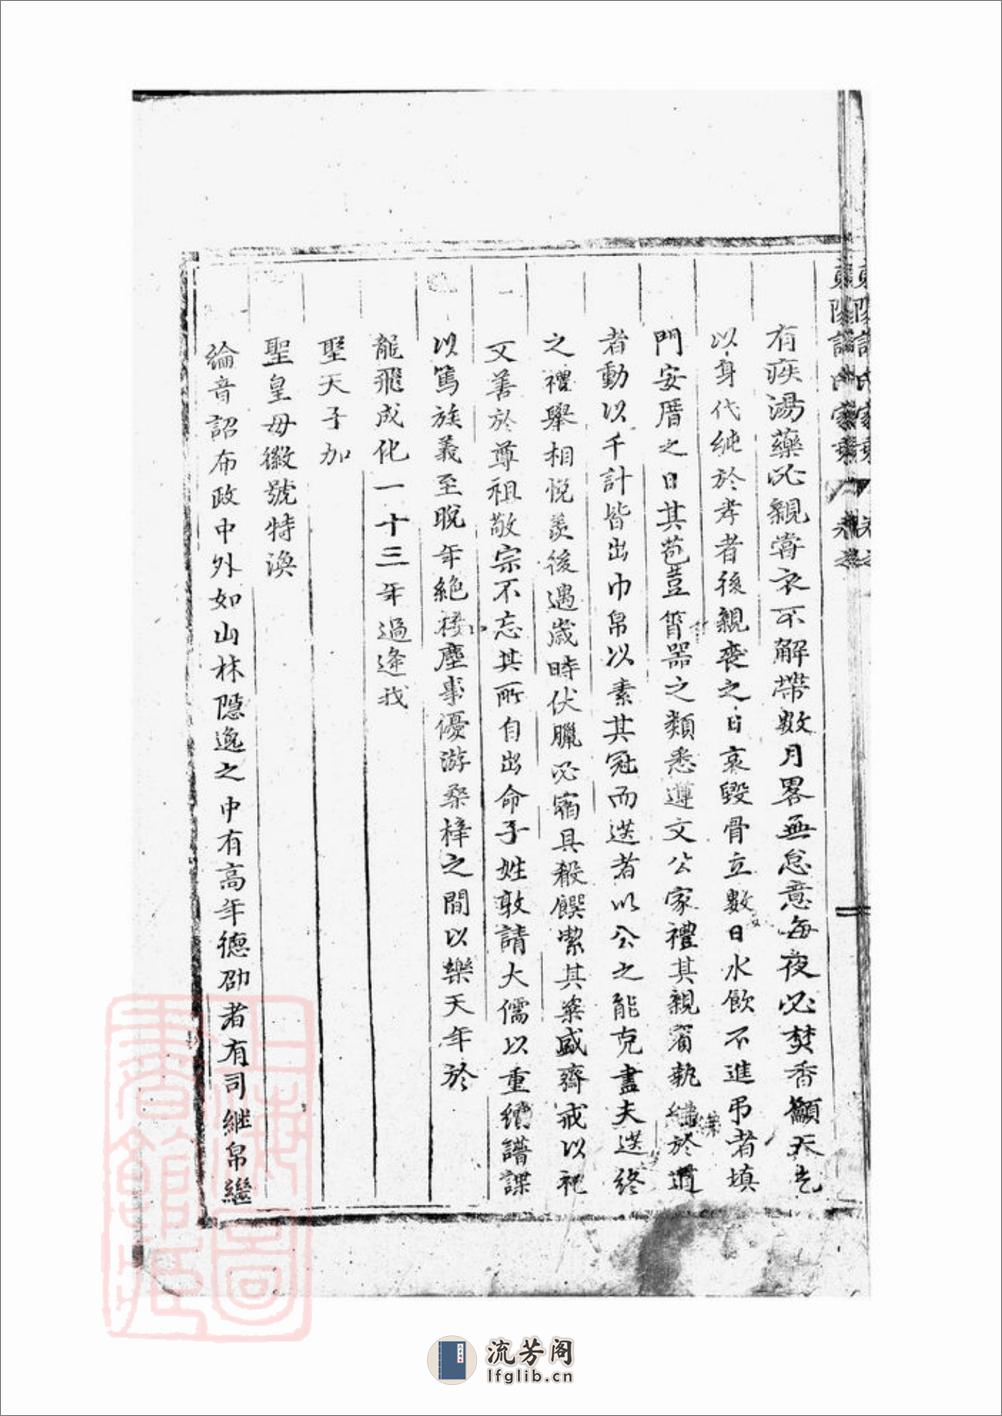 有疾湯藥必親嘗衣不解帶數月畧無怠意每夜必焚香籲天乞
以身代純於孝者後親喪之日哀毀骨立數日水飲不進弔者填
門安厝之日其苞荳筲器之類悉遵文公家禮其親賓執紼於道
者動以千計皆出巾帛以素其冠而送者以公之能克盡夫送終
之禮舉相悅羡後遇歲時伏臘必宿具殽饌潔其粢盛齊戒以祀
又善於尊祖敬宗不忘其所自出命子姓敦請大儒以重續譜諜
以篤族義至晚年絕務塵事優游桑梓之間以樂天年於
龍飛成化一十三年過逢我
聖天子加
聖皇母徽號特渙
綸音詔布政中外如山林隱逸之中有高年德卲者有司継帛繼
東陽許氏家乘
流芳阁
lfglib.cn